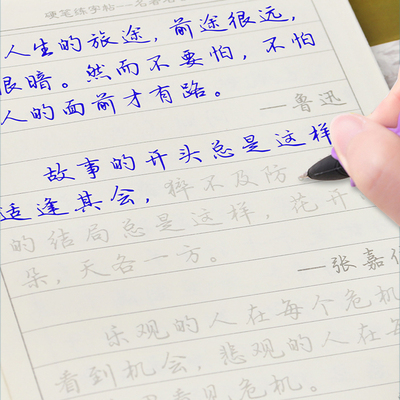 硬笔练字帖
人生的旅途，前途很远，
很暗。然而不要怕，不怕
人的面前才有路。
—鲁迅
故事的开头总是这样
适逢其会，猝不及防
的结局总是这样，花开
朵，天各一方。
—张嘉
乐观的人在每个危机
看到机会，悲观的人在每
意见危机。